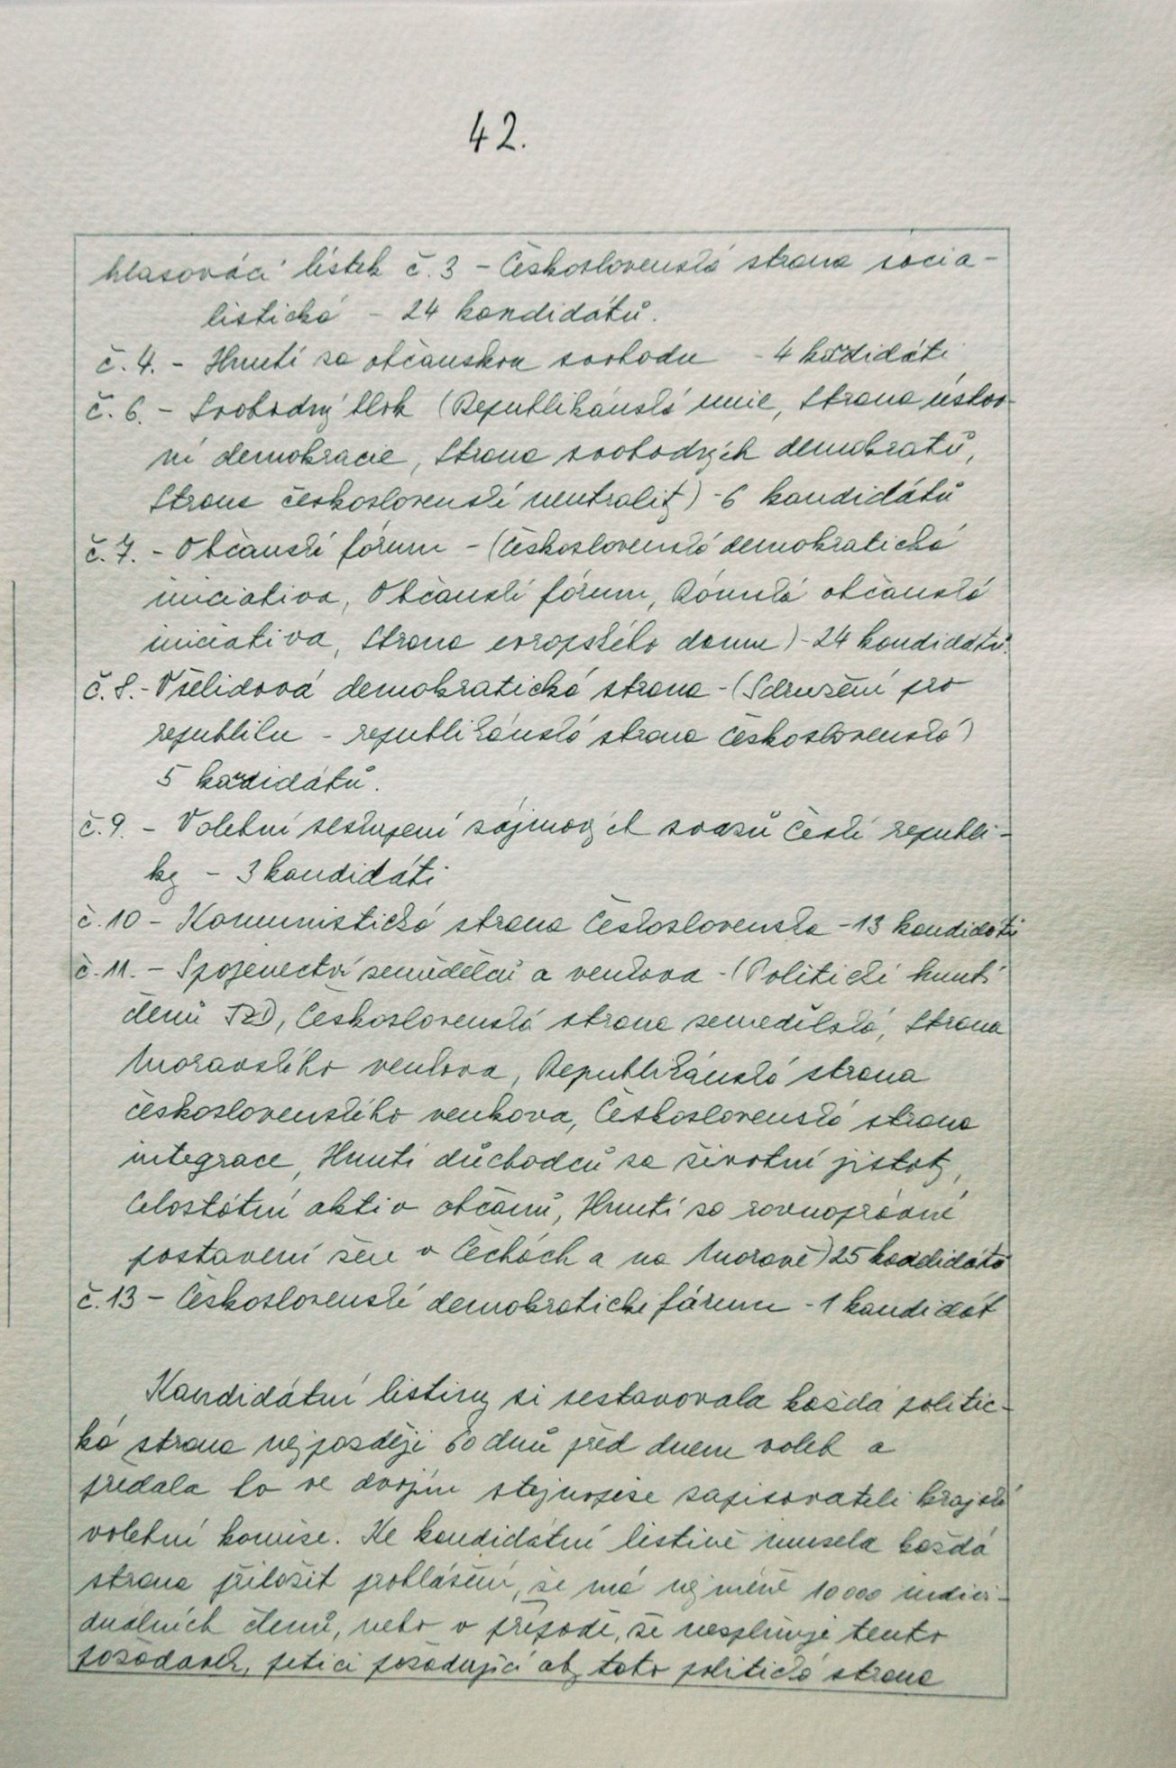 42.
hlasovací lístek č. 3 - Československá strana socia-
listická - 24 kandidátů.
č. 4. - Hnutí za občanskou svobodu - 4 kandidáti
č. 6. - Svobodný blok (Republikánská unie, Strana ústav-
ní demokracie, Strana svobodných demokratů,
Strana československé neutrality) - 6 kandidátů
č. 7. - Občanské fórum - (Československá demokratická
iniciativa, Občanské fórum, Romská občanská
iniciativa, Strana evropského domu) - 24 kandidátů.
č. 8. - Všelidová demokratická strana - (Sdružení pro
republiku - republikánská strana Československá)
5 kandidátů.
č. 9. - Volební seskupení zájmových svazů České republi-
ky - 3 kandidáti
č. 10 - Komunistická strana Československa - 13 kandidáti
č. 11. - Spojenectví zemědělců a venkova - (Politické hnutí
členů JZD, Československá strana zemědělská, Strana
Moravského venkova, Republikánská strana
československého venkova, Československá strana
integrace, Hnutí důchodců za životní jistoty,
Celostátní aktiv občanů, Hnutí za rovnoprávné
postavení žen v Čechách a na Moravě) 25 kandidátů
č. 13 - Československé demokratické fórum - 1 kandidát
Kandidátní listiny si sestavovala každá politic-
ká strana nejpozději 60 dnů před dnem voleb a
předala to ve dvojím stejnopise zapisovateli krajské
volební komise. Ke kandidátní listině musela každá
strana přiložit prohlášení, že má nejméně 10 000 indivi-
duálních členů, nebo v případě, že nesplňuje tento
požadavek, petici požadující aby tato politická strana